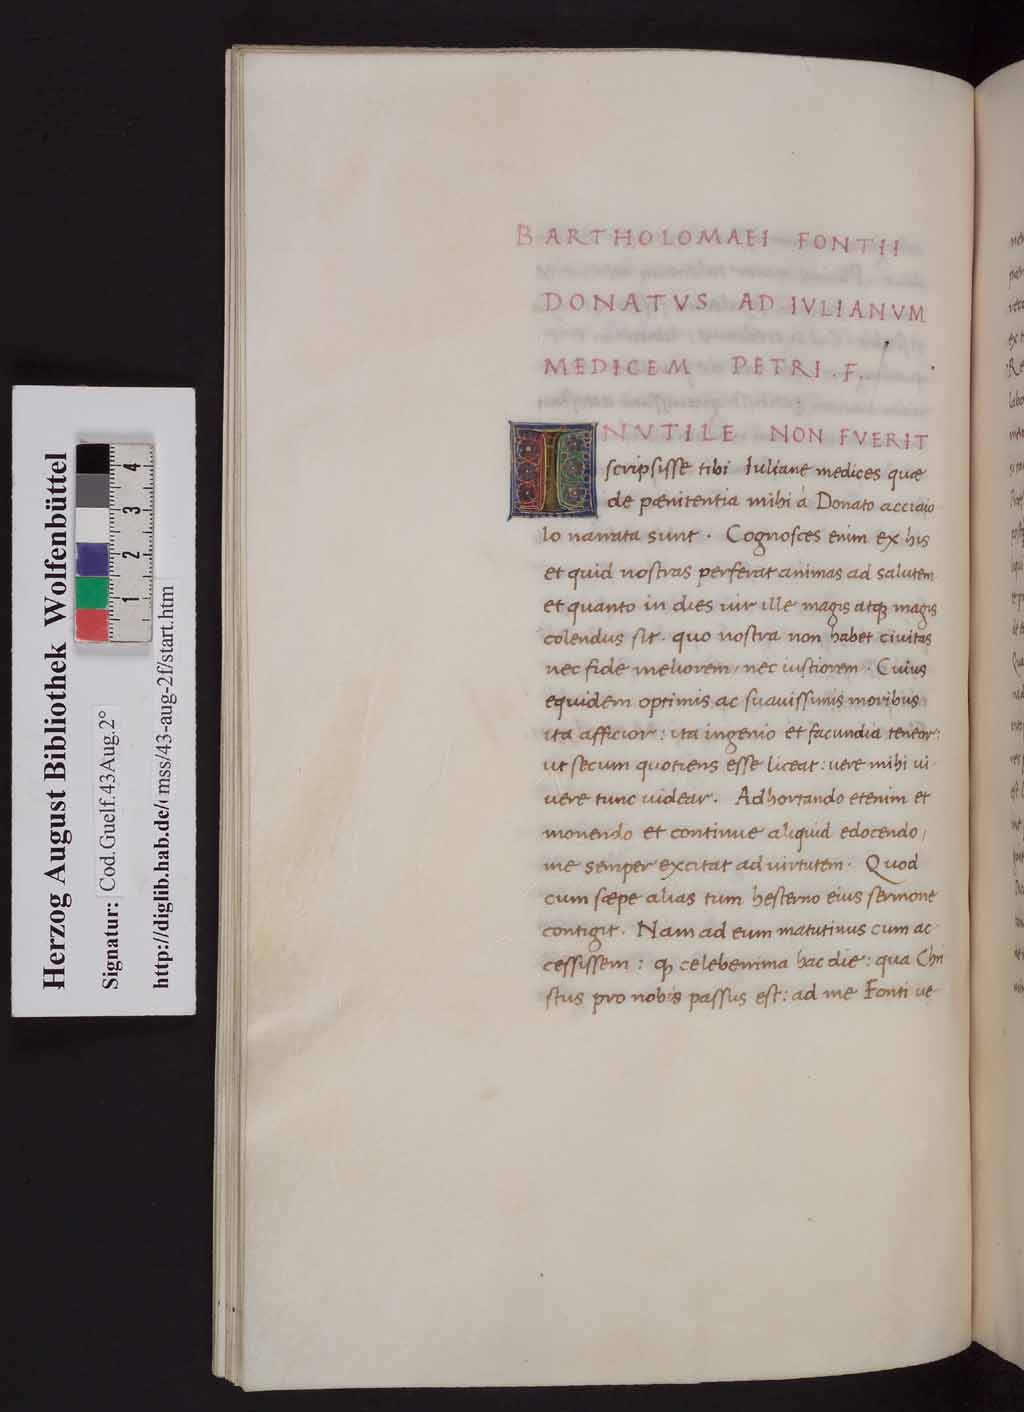 BARTHOLOMAEI FONTII
DONATVS AD IVLIANVM
MEDICEM PETRI . F.
INVTILE NON FVERIT
scripsisse tibi Iuliane medices quæ
de pænitentia mihi á Donato acciaio
lo narrata sunt . Cognosces enim ex his
et quid nostras perferat animas ad salutem
et quanto in dies uir ille magis atqꝫ magis
colendus sit . quo nostra non habet ciuitas
nec fide meliorem , nec iustiorem . Cuius
equidem optimis ac suauissimis moribus
ita afficior : ita ingenio et facundia teneor :
ut secum quotiens esse liceat : uere mihi ui
uere tunc uidear . Adhortando etenim et
monendo et continue aliquid edocendo ,
me semper excitat ad uirtutem . Quod
cum sæpe alias tum hesterno eius sermone
contigit . Nam ad eum matutinus cum ac
cessissem : ꝙ celeberrima hac die : qua Chri
stus pro nobis passus est : ad me Fonti ue
Herzog August Bibliothek Wolfenbüttel
Signatur: Cod.Guelf.43Aug.2°
http://diglib.hab.de/ mss/43-aug-2f/start.htm
1 2 3 4